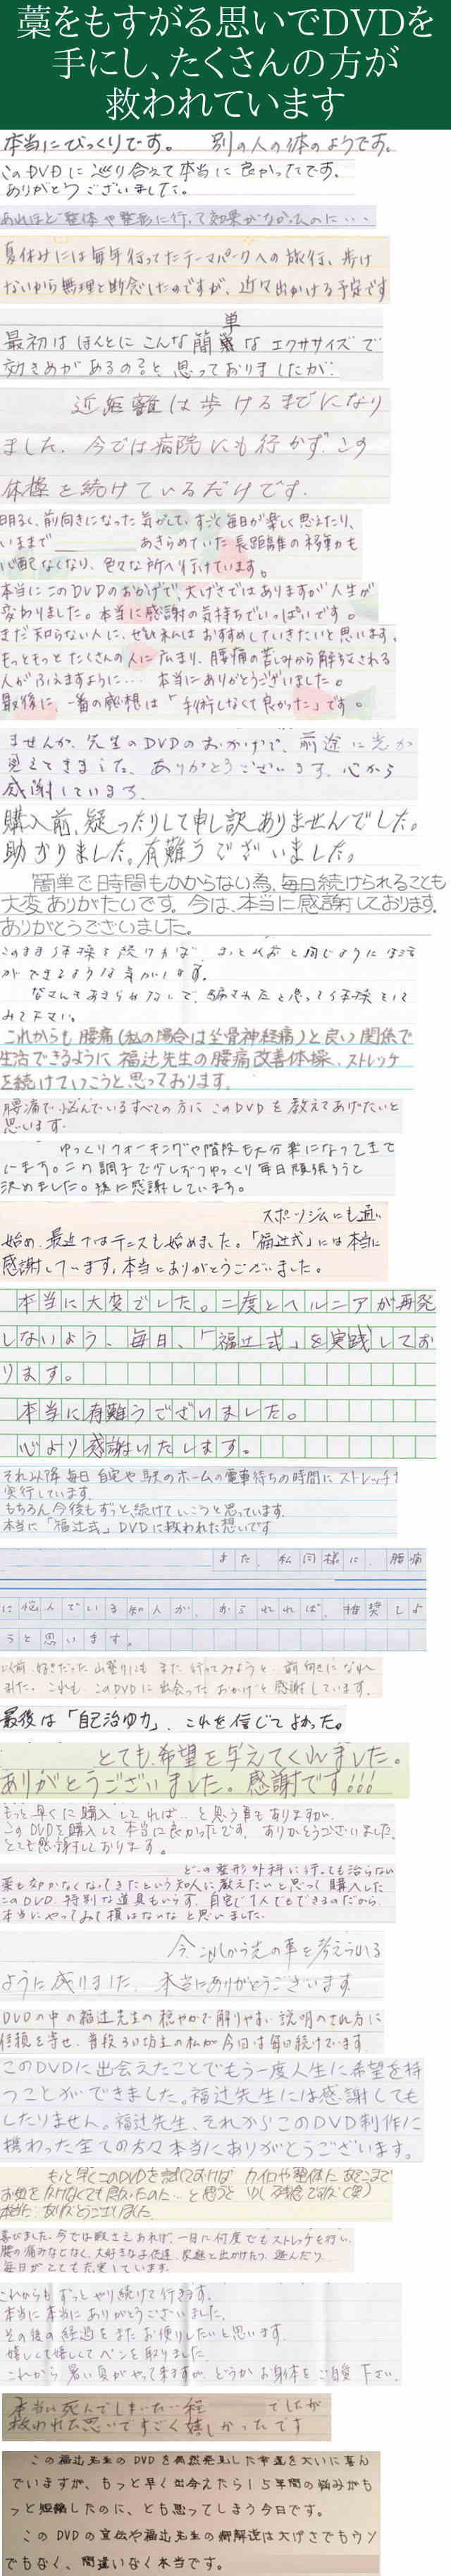 藁をもすがる思いでDVDを
手にし、たくさんの方が
救われています
本当にびっくりです。 別の人の体のようです。
このDVDに巡り合えて本当に良かったです。
ありがとうございました。
あれほど整体や整形に行って効果がなかったのに…
夏休みには毎年行ってたテーマパークへの旅行、歩け
ないから無理と断念したのですが、近々出かける予定です
最初はほんとにこんな簡単なエクササイズで
効きめがあるのかと思っておりましたが
近距離は歩けるまでになり
ました。今では病院にも行かず、この
体操を続けているだけです。
明るく、前向きになった気がして、すごく毎日が楽しく思えたり、
いままで あきらめていた長距離の移動も
心配なくなり、色々な所へ行けています。
本当にこのDVDのおかげで、大げさではありますが人生が
変わりました。本当に感謝の気持ちでいっぱいです。
まだ知らない人に、ぜひ私はおすすめしていきたいと思います。
もっともっとたくさんの人に広まり、腰痛の苦しみから解放される
人がふえますように… 本当にありがとうございました。
最後に、一番の感想は「手術しなくて良かった」です。
ませんが、先生のDVDのおかげで、前途に光が
見えてきました。ありがとうございます。心から
感謝しています。
購入前、疑ったりして申し訳ありませんでした。
助かりました。有難うございました。
簡単で時間もかからない為、毎日続けられることも
大変ありがたいです。今は、本当に感謝しております。
ありがとうございました。
このまま体操を続ければ、きっと以前と同じように生活
ができるような気がします。
皆さんもあきらめないで、騙されたと思って体操をして
みて下さい。
これからも腰痛(私の場合は坐骨神経痛)と良い関係で
生活できるように福辻先生の腰痛改善体操、ストレッチ
を続けていこうと思っております。
腰痛で悩んでいるすべての方にこのDVDを教えてあげたいと
思います。
ゆっくりウォーキングや階段も大分楽になってきて
います。この調子で少しずつゆっくり毎日頑張ろうと
決めました。様に感謝しています。
スポーツジムにも通い
始め、最近ではテニスも始めました。「福辻式」には本当に
感謝しています。本当にありがとうございました。
本当に大変でした。二度とヘルニアが再発
しないよう、毎日、「福辻式」を実践してお
ります。
本当に有難うございました。
心より感謝いたします。
それ以降毎日自宅や駅のホームの電車待ちの時間にストレッチを
実行しています。
もちろん今後もずっと続けていこうと思っています。
本当に「福辻式」DVDに救われた想いです
また、私同様に、腰痛
に悩んでいる知人が、おられれば、推奨しよ
うと思います。
以前、好きだった山登りにもまた行ってみようと、前向きになれ
ました。これも、このDVDに出会ったおかげと感謝しています。
最後は「自己治ゆ力」、これを信じてよかった。
とても、希望を与えてくれました。
ありがとうございました。感謝です!!!
もっと早くに購入してれば…と思う事もありますが、
このDVDを購入して本当に良かったです。ありがとうございました。
とても感謝しております。
どこの整形外科に行っても治らない
薬も効かなくなってきたという知人に教えたいと思って購入した
このDVD。特別な道具もいらず、自宅で1人でもできるのだから、
本当にやってみて損はないなと思いました。
今、これから先の事を考えられる
ように成りました。本当にありがとうございます。
DVDの中の福辻先生の穏やかで解りやすい説明のされ方に
信頼を寄せ、普段3日坊主の私が今回は毎日続けています
このDVDに出会えたことでもう一度人生に希望を持
つことができました。福辻先生には感謝しても
したりません。福辻先生、それからこのDVD制作に
携わった全ての方々本当にありがとうございます。
もっと早くこのDVDを試してみれば カイロや整体にあそこまで
お金をかけなくても良かったのに…と思うと少し残念ですが(笑)
本当にありがとうございました
喜びました。今では暇さえあれば、一日に何度でもストレッチを行い、
腰の痛みなどなく、大好きな子供達、家族と出かけたり、遊んだり
毎日がとても充実しています。
これからもずっとやり続けて行きます。
本当に本当にありがとうございました。
その後の経過をまたお便りしたいと思います。
嬉しくて嬉しくてペンを取りました。
これから暑い夏がやって来ますが、どうかお身体をご自愛下さい。
本当に死んでしまいたい程 でしたが
救われた思いですごく嬉しかったです
この福辻先生のDVDを偶然発見した幸運を大いに喜ん
でいますが、もっと早く出会えたら15年間の悩みがも
っと短縮したのに、とも思ってしまう今日です。
このDVDの宣伝や福辻先生の病解説は大げさでもウソ
でもなく、間違いなく本当です。